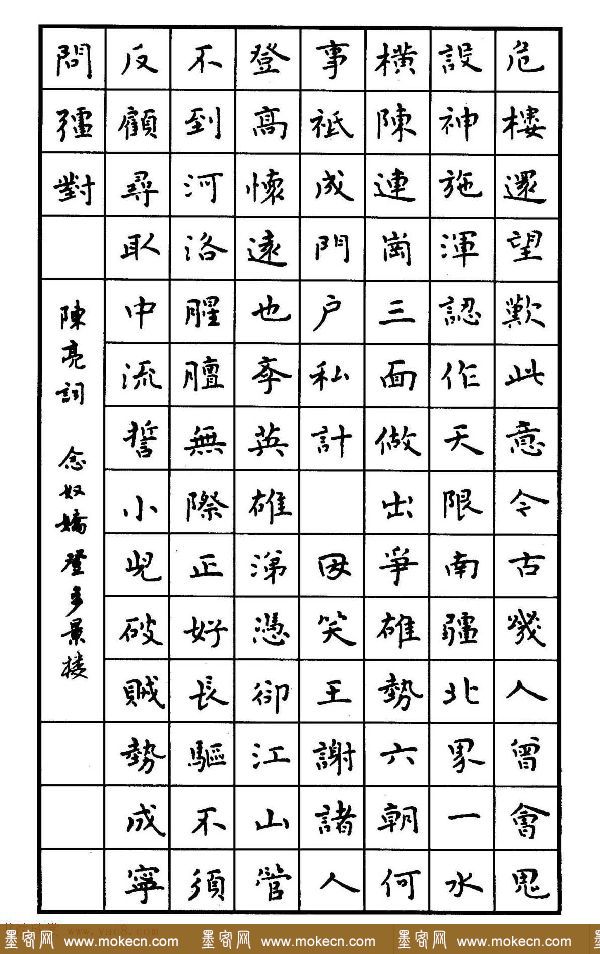 危樓還望歎此意今古幾人曾會鬼
設神施渾認作天限南疆北界一水
橫陳連崗三面做出爭雄勢六朝何
事祇成門户私計 因笑王謝諸人
登高懷遠也學英雄涕憑卻江山管
不到河洛腥膻無際正好長驅不須
反顧尋取中流誓小兒破賊勢成寧
問彊對
陳亮詞 念奴嬌登多景楼
墨客网 www.mokecn.com 墨客网 www.mokecn.com 墨客网 www.mokecn.com